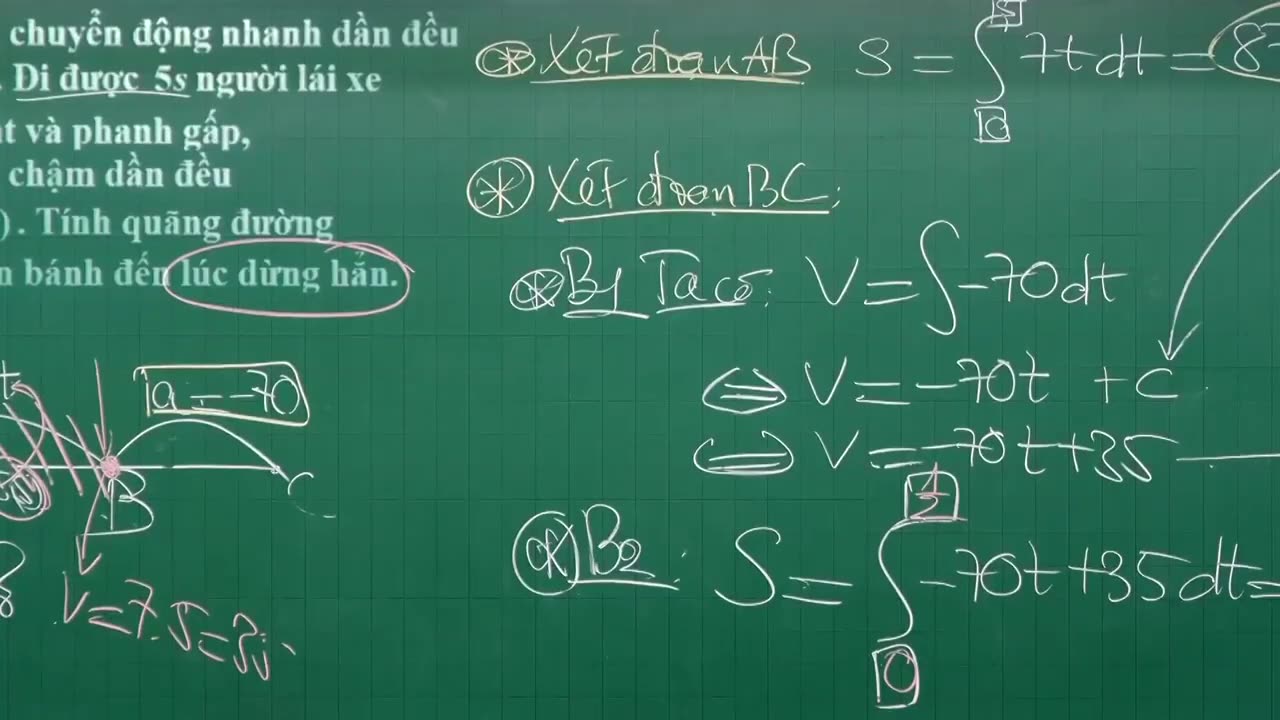 chuyển động nhanh dần đều
. Di được 5s người lái xe
và phanh gấp,
chậm dần đều
). Tính quãng đường
bánh đến lúc dừng hẳn.
a = -70
B
C
V = 7.5 = 3
⊛ Xét đoạn AB S = ∫ 7t dt = 87
5
0
⊛ Xét đoạn BC:
⊛ B1 Ta có: V = ∫ -70 dt
⇔ V = -70t + C
⇔ V = -70t + 35
⊛ B2: S = ∫ -70t + 35 dt =
1/2
0